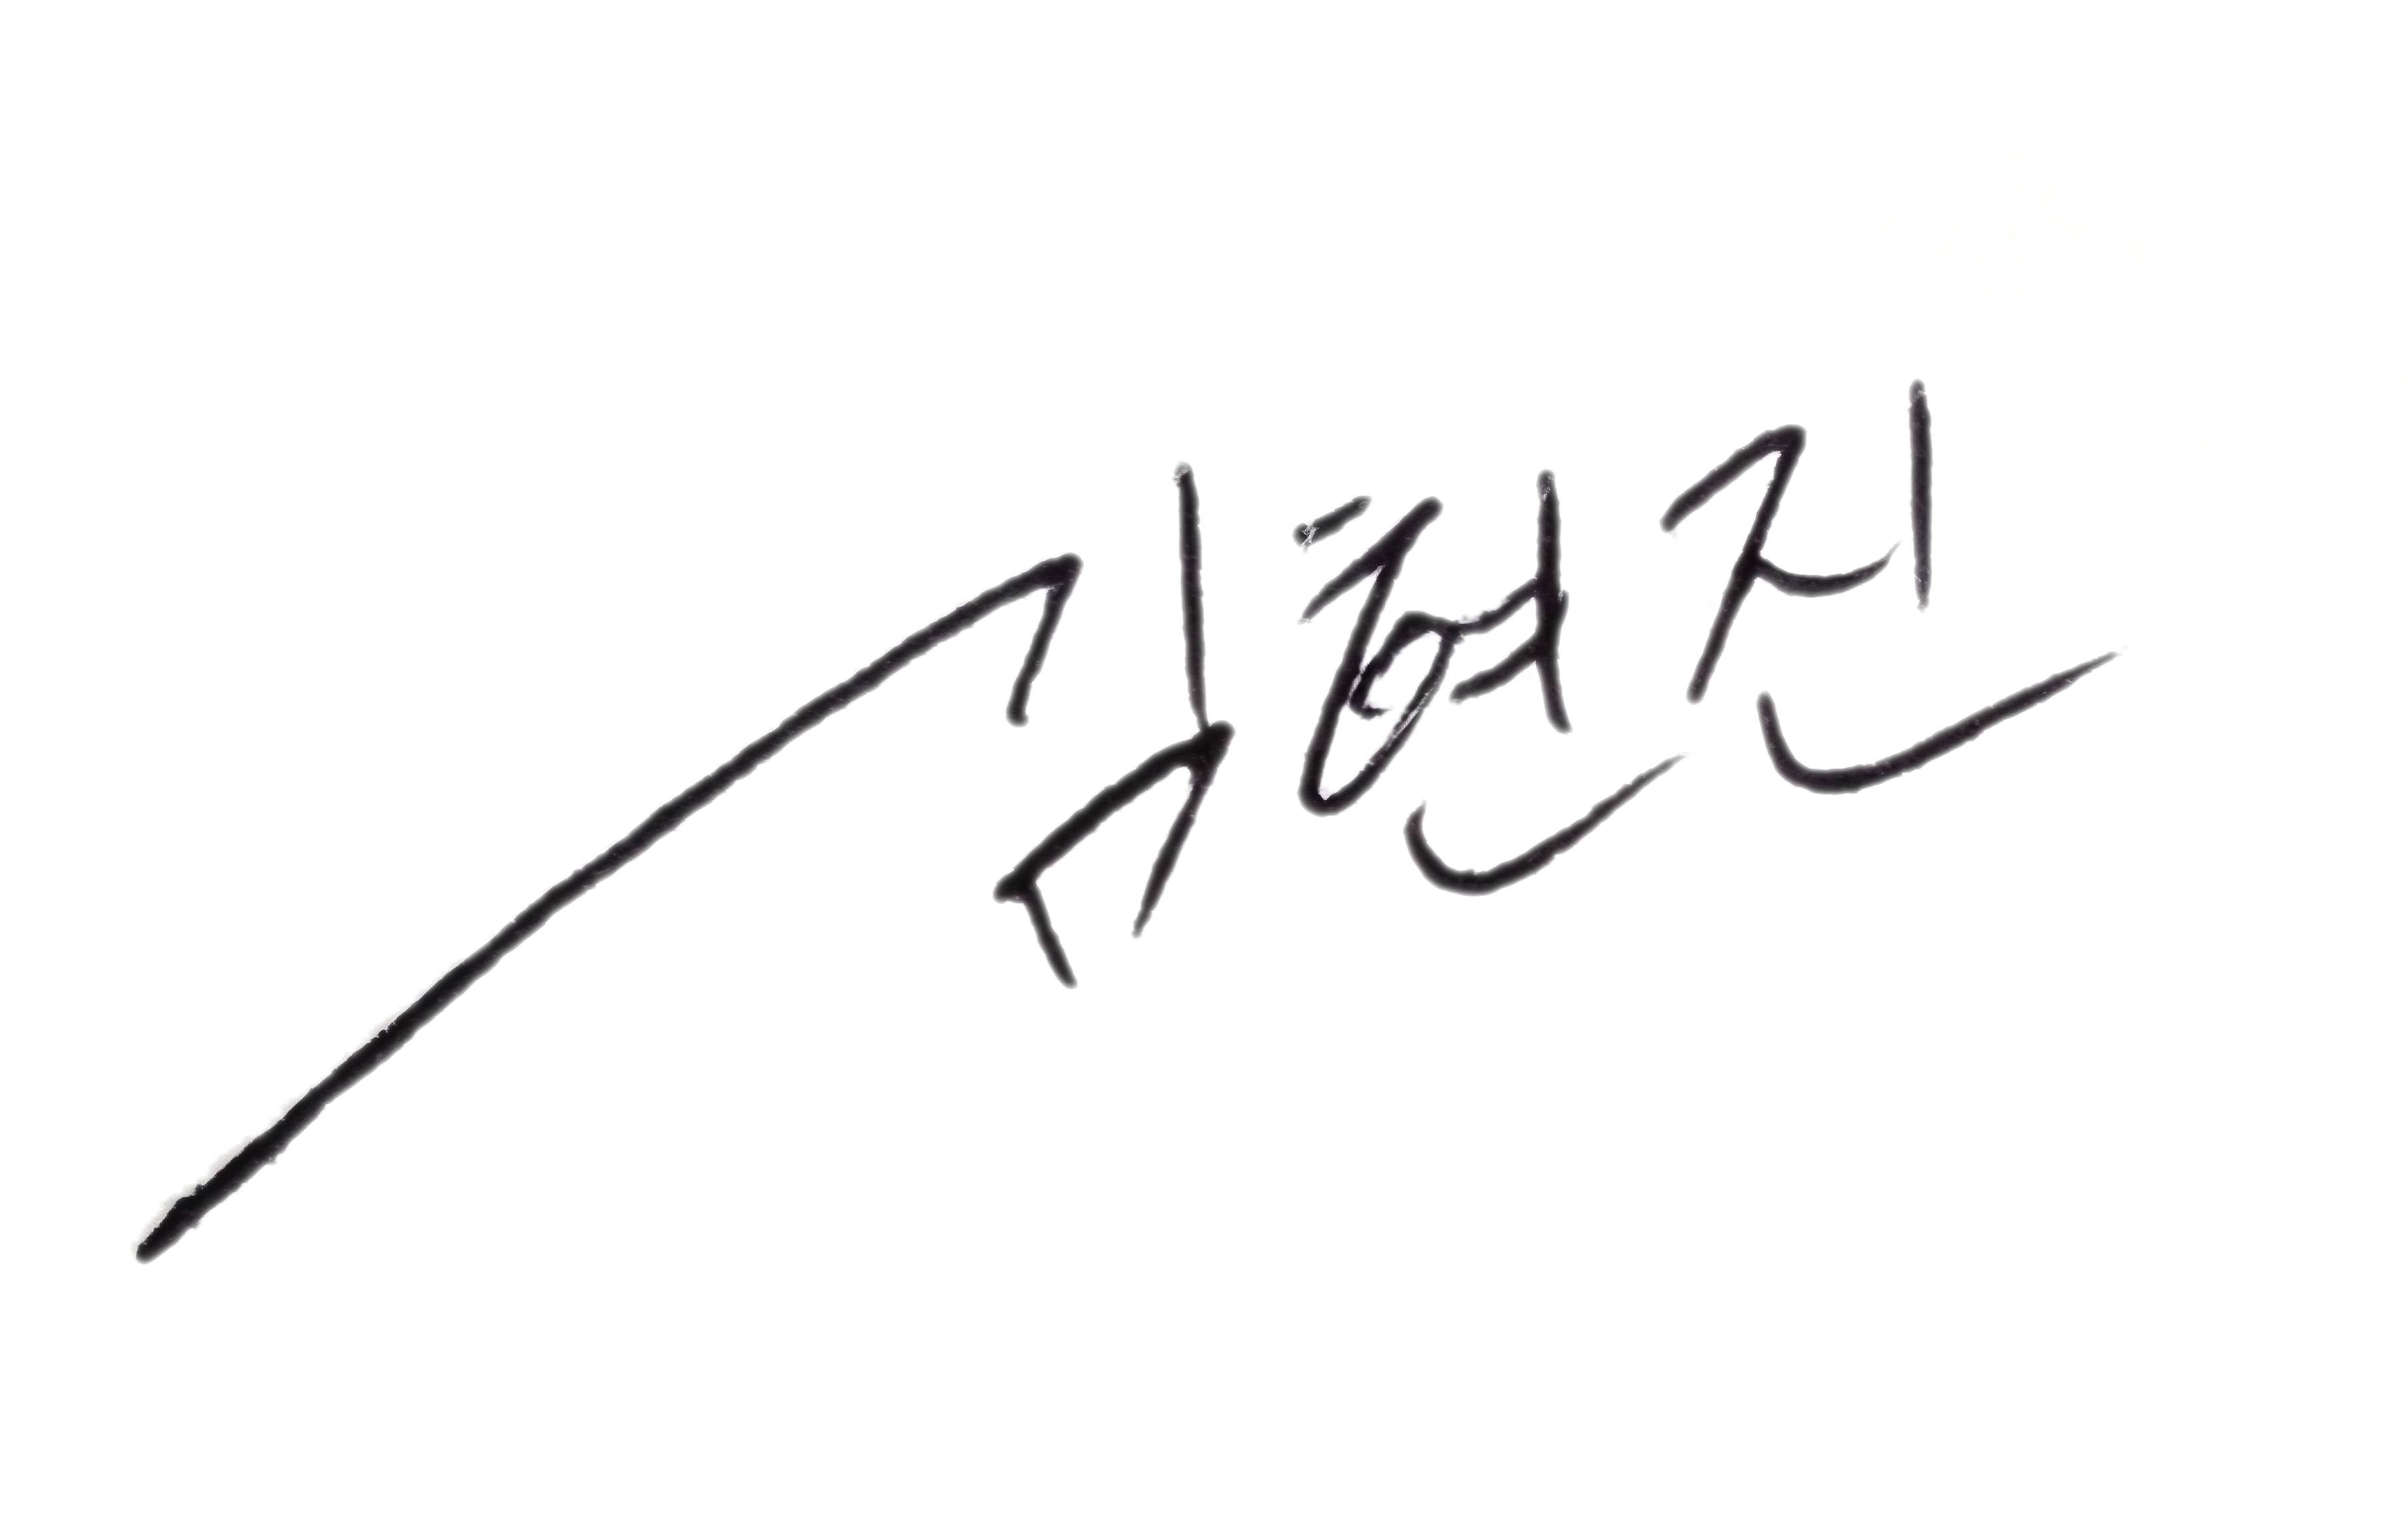 김현진